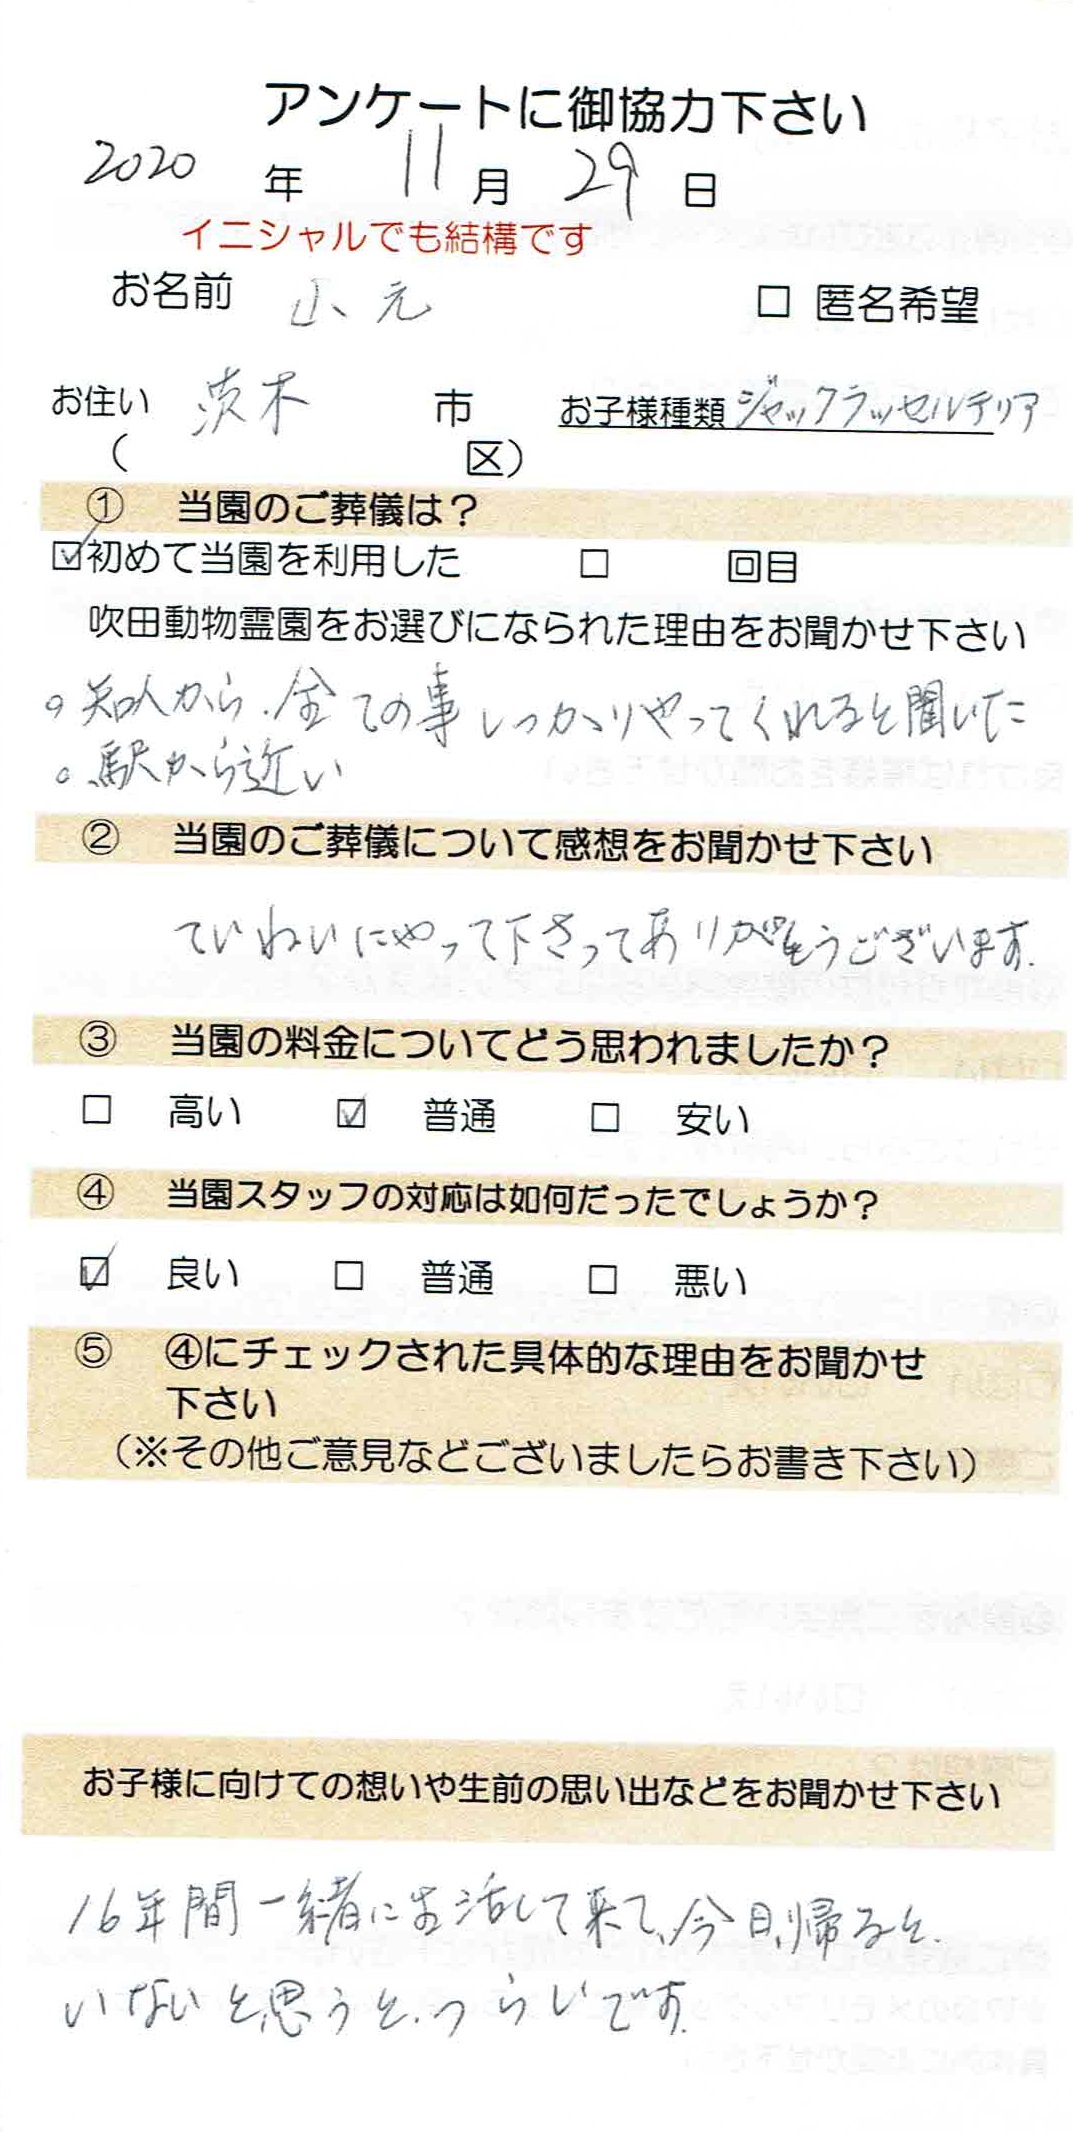 アンケートに御協力下さい
2020 年 11 月 29 日
イニシャルでも結構です
お名前 山元 □ 匿名希望
お住い 茨木 市 お子様種類 ジャックラッセルテリア
( 区)
① 当園のご葬儀は?
☑初めて当園を利用した □ 回目
吹田動物霊園をお選びになられた理由をお聞かせ下さい
。知人から、全ての事しっかりやってくれると聞いた
。駅から近い
② 当園のご葬儀について感想をお聞かせ下さい
ていねいにやって下さってありがとうございます。
③ 当園の料金についてどう思われましたか?
□ 高い ☑ 普通 □ 安い
④ 当園スタッフの対応は如何だったでしょうか?
☑ 良い □ 普通 □ 悪い
⑤ ④にチェックされた具体的な理由をお聞かせ
下さい
(※その他ご意見などございましたらお書き下さい)
お子様に向けての想いや生前の思い出などをお聞かせ下さい
16年間一緒に生活して来て、今日、帰ると、
いないと思うと、つらいです。